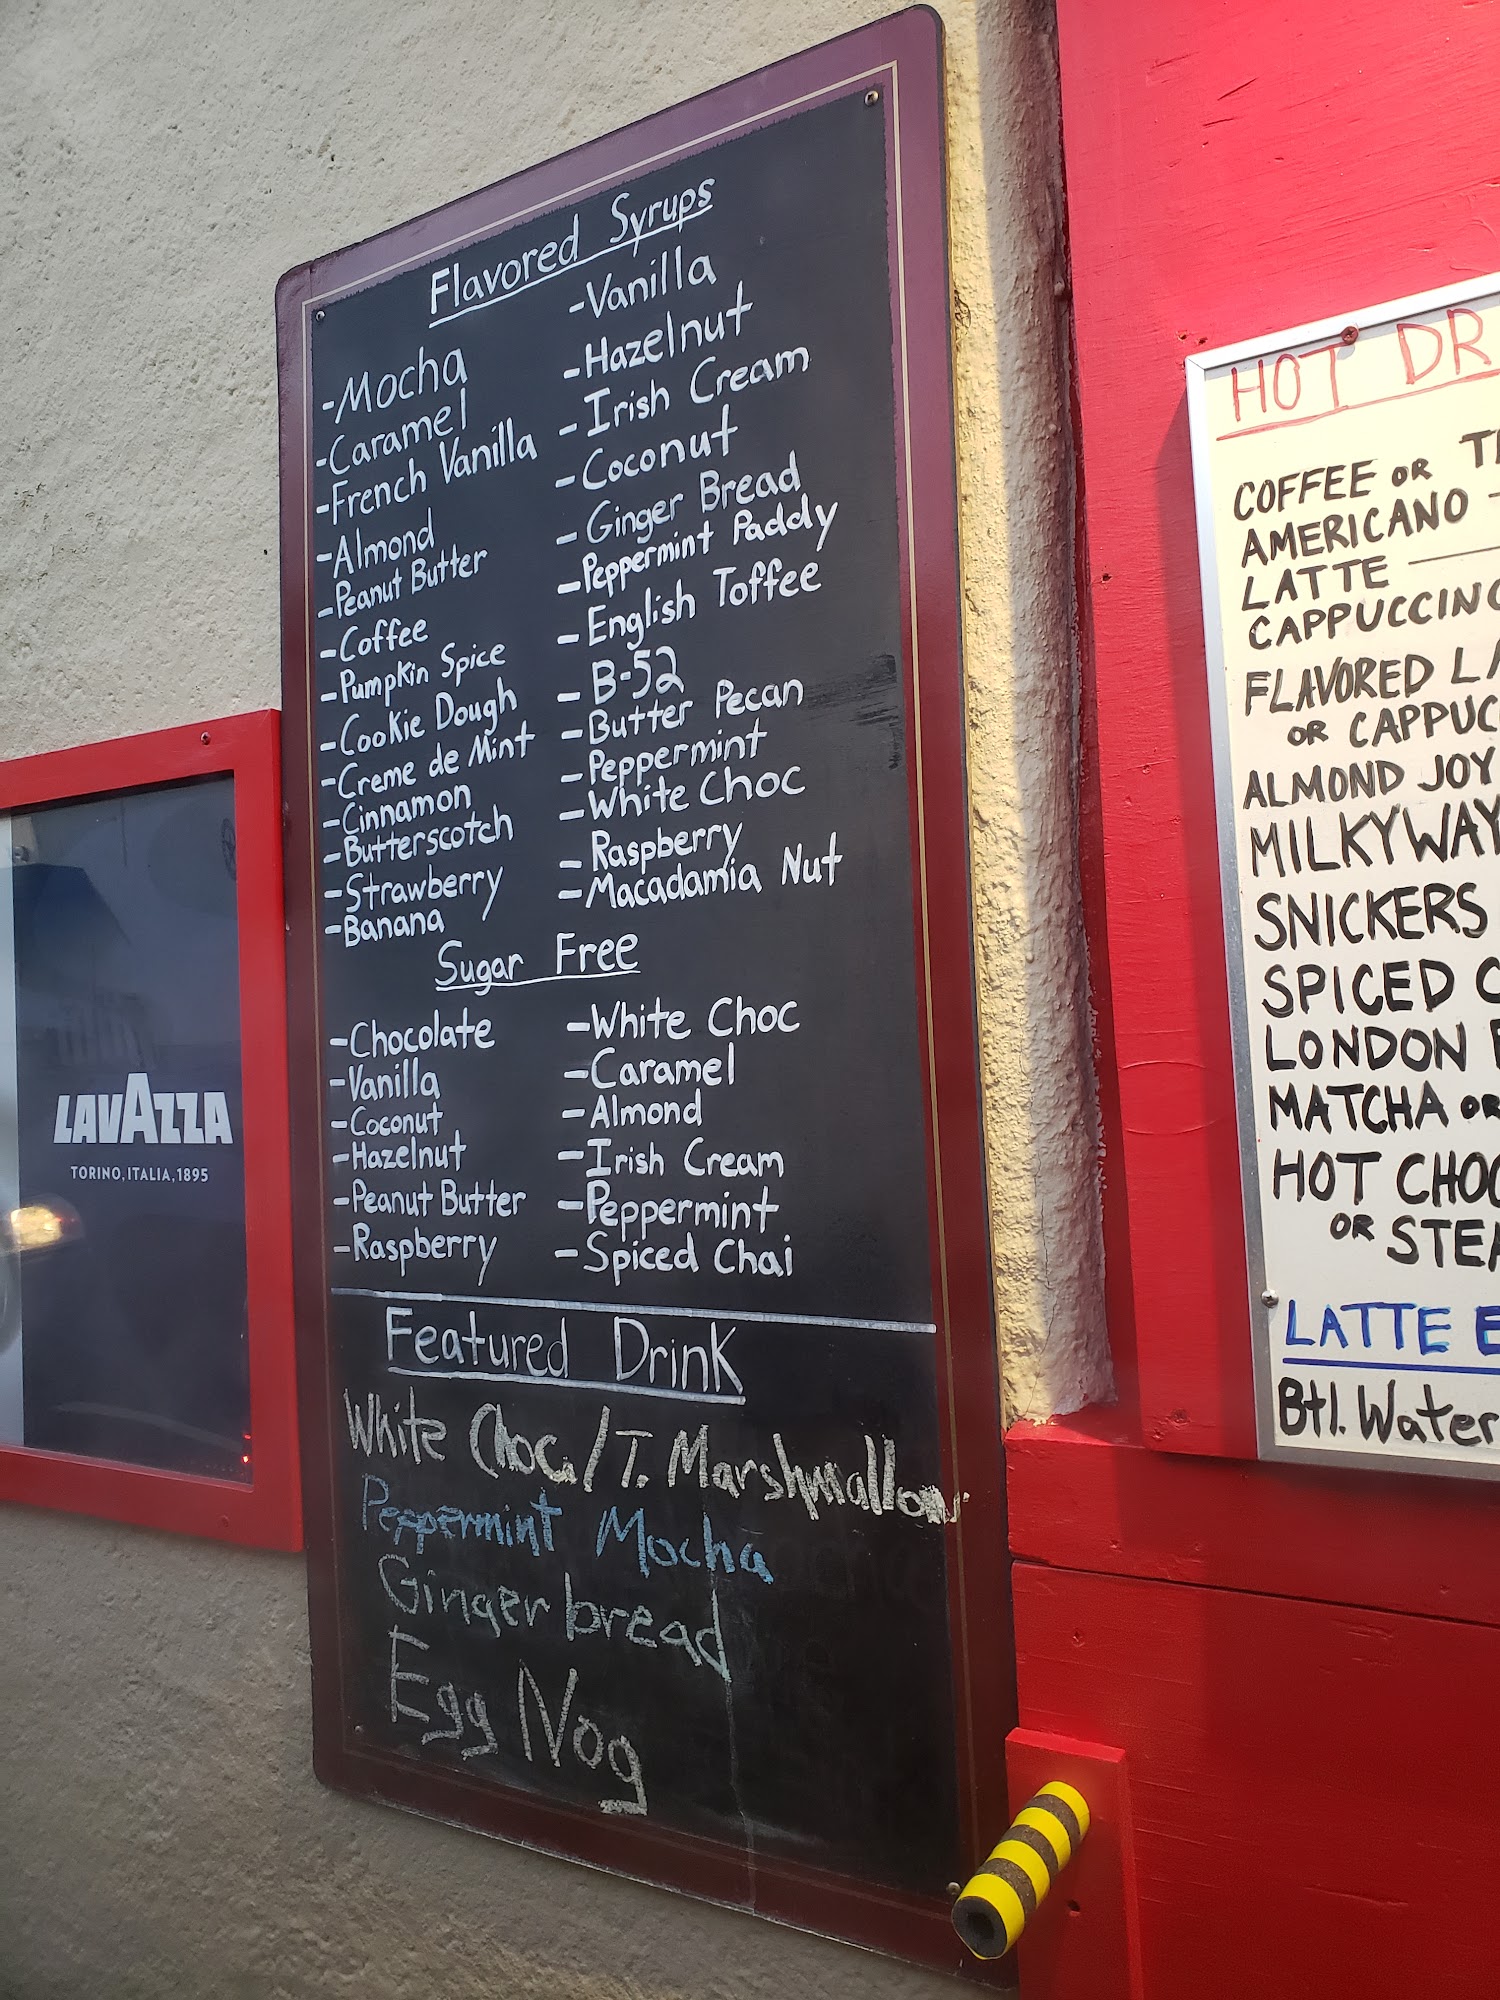 Flavored Syrups
-Mocha
-Caramel
-French Vanilla
-Almond
-Peanut Butter
-Coffee
-Pumpkin Spice
-Cookie Dough
-Creme de Mint
-Cinnamon
-Butterscotch
-Strawberry
-Banana
-Vanilla
-Hazelnut
-Irish Cream
-Coconut
-Ginger Bread
-Peppermint Paddy
-English Toffee
-B-52
-Butter Pecan
-Peppermint
-White Choc
-Raspberry
-Macadamia Nut
Sugar Free
-Chocolate
-Vanilla
-Coconut
-Hazelnut
-Peanut Butter
-Raspberry
-White Choc
-Caramel
-Almond
-Irish Cream
-Peppermint
-Spiced Chai
Featured Drink
White Choc/T. Marshmallow
Peppermint Mocha
Gingerbread
Egg Nog
LAVAZZA
TORINO, ITALIA, 1895
HOT DR
COFFEE OR T
AMERICANO -
LATTE —
CAPPUCCINO
FLAVORED LA
OR CAPPUC
ALMOND JOY
MILKYWAY
SNICKERS
SPICED C
LONDON
MATCHA OR
HOT CHOC
OR STEA
LATTE E
Btl. Water